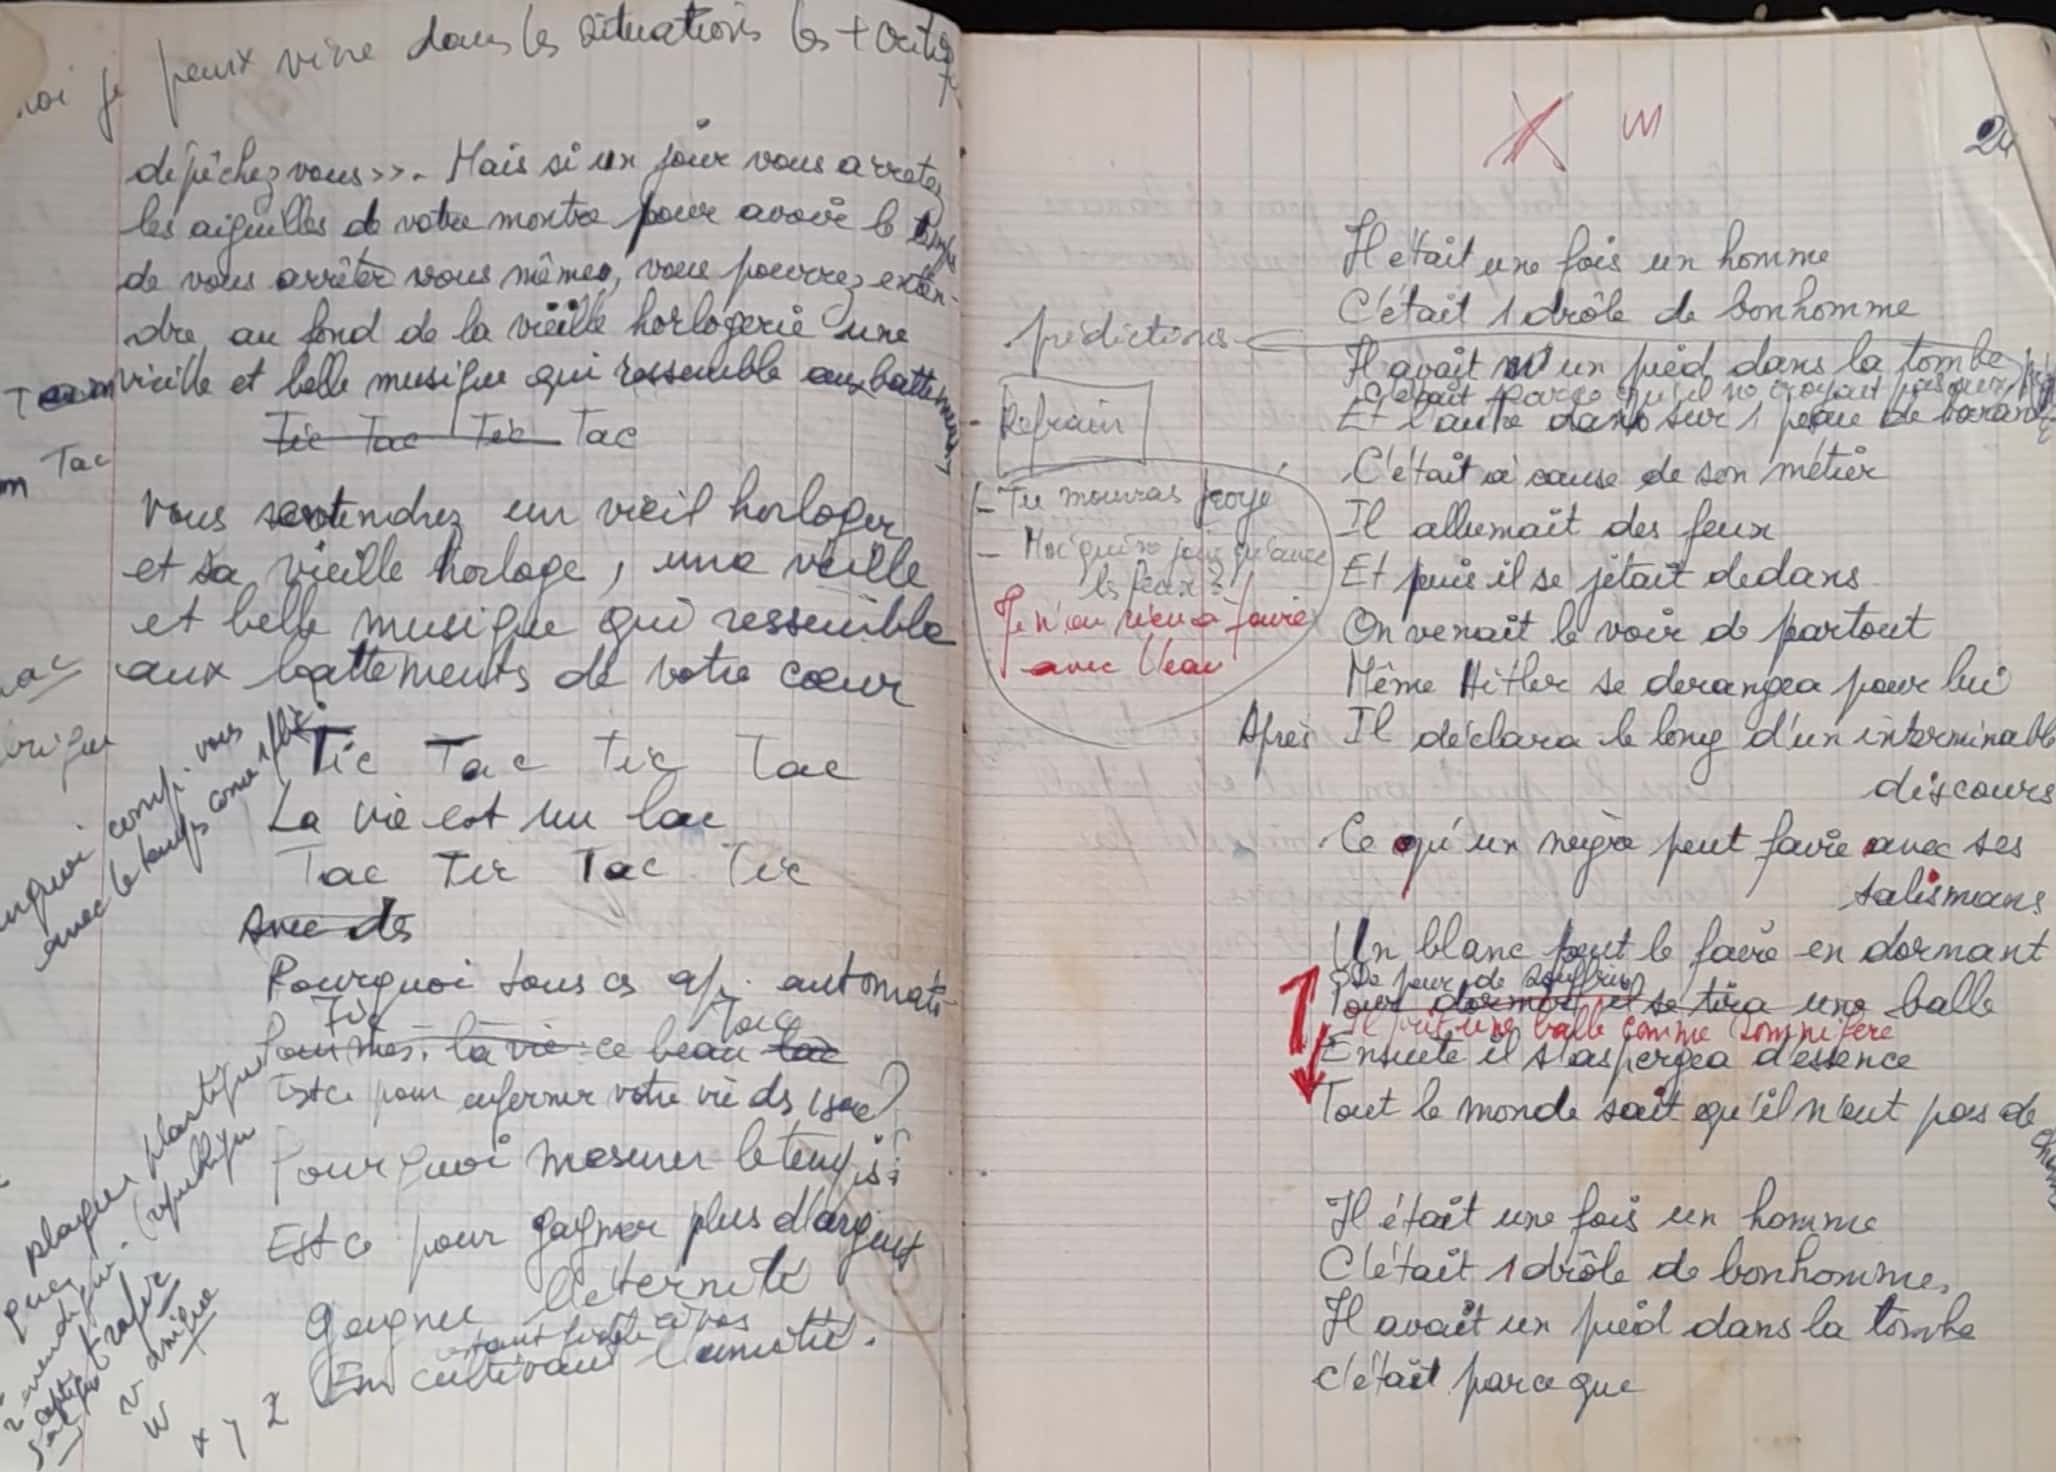 je peux vivre dans les situations les + critiq
dépêchez vous >>. Mais si un jour vous arretez
les aiguilles de votre montre pour avoir le temps
de vous arrêter vous mêmes, vous pourrez enten-
dre au fond de la vieille horlogerie une
vieille et belle musique qui ressemble aux battements
Tic Tac Tic Tac
Tac
Vous entendrez un vieil horloger
et sa vieille horloge, une vieille
et belle musique qui ressemble
aux battements de votre cœur
Tic Tac Tic Tac
La vie est un lac
Tac Tic Tac Tic
Avec des
Pourquoi tous ces ap. automati-
Tic Tac
la vie ce beau lac
Est ce pour enfermer votre vie ds 1 sac?
Pourquoi mesurer le temps?
Est ce pour gagner plus d'argent
Gagner l'éternité
à vos
En cultivant l'amitié.
avec le temps comme
plaques plastique
v
w
x y z
24
Il était une fois un homme
C'était 1 drôle de bonhomme
prédictions
Il avait un pied dans la tombe
C'était parce qu'il ne croyait pas aux
Et l'autre dans sur 1 peau de banane
Refrain
C'était à cause de son métier
- Tu mouras
Il allumait des feux
- Moi qui ne joue qu'avec
les feux ?
Et puis il se jetait dedans
Je n'ai rien à faire
avec l'eau
On venait le voir de partout
Même Hitler se derangea pour lui
Après Il déclara le long d'un interminable
discours
Ce qu'un nègre peut faire avec ses
talismans
Un blanc peut le faire en dormant
De peur de souffrir
Pour dormir il se tira une balle
Il prit une balle comme somnifère
Ensuite il s'aspergea d'essence
Tout le monde sait qu'il n'eut pas de
Il était une fois un homme
C'était 1 drôle de bonhomme,
Il avait un pied dans la tombe
C'était parce que